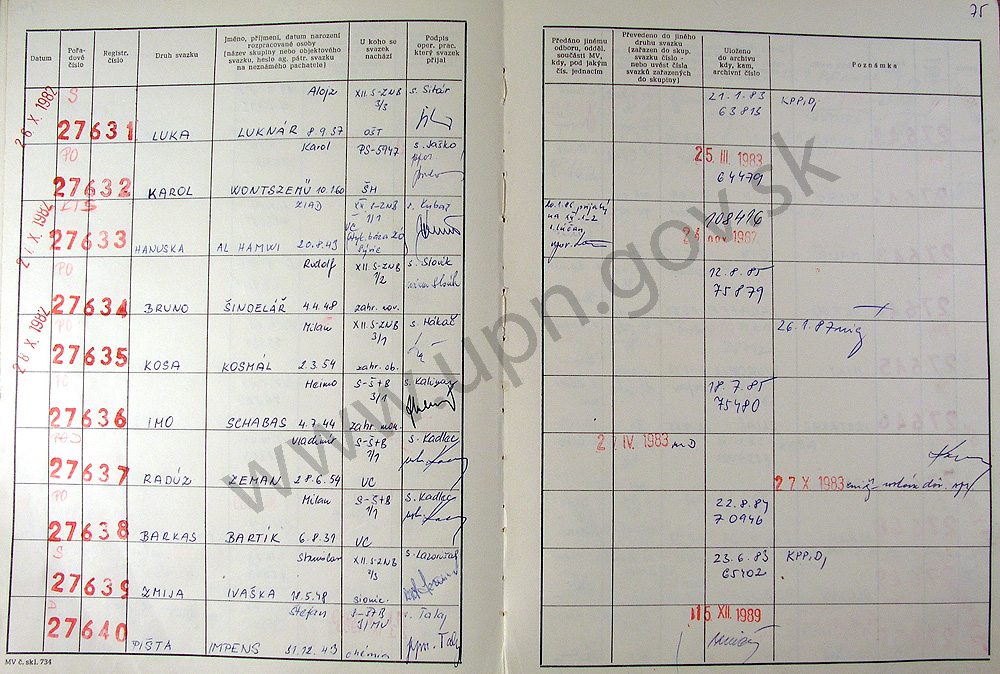 75
Datum
Pořadové číslo
Registr. číslo
Druh svazku
Jméno, příjmení, datum narození rozpracované osoby (název skupiny nebo objektového svazku, heslo ag. pátr. svazku na neznámého pachatele)
U koho se svazek nachází
Podpis oper. prac. který svazek přijal
Předáno jinému odboru, odděl. součásti MV kdy, pod jakým čís. jednacím
Převedeno do jiného druhu svazku (zařazen do skup. svazku číslo - nebo uvést čísla svazků zařazených do skupiny)
Uloženo do archivu kdy, kam, archivní číslo
Poznámka
26 X. 1982
S
27631
LUKA
Alojz
LUKNÁR 8.9.37
XII. S-ZNB
3/3
OŠT
s. Sitár
21.1.83
63813
KPP,D,
PO
27632
KAROL
Karol
WONTSZEMÜ 10.1.60
PS-5947
ŠH
s. Jaško
25. III. 1983
64479
27. X. 1982
KTS
27633
HANUSKA
ZIAD
AL HAMWI 20.8.43
1/1
VC
Sýrie
s. Kubač
108416
24. nov. 1987
PO
27634
BRUNO
Rudolf
ŠINDELÁŘ 4.4.48
XII. S-ZNB
1/2
zahr. nov.
s. Slovík
12.8.85
75879
28 X. 1982
PO
27635
KOSA
Milan
KOSMÁL 2.3.54
XII. S-ZNB
3/1
zahr. ob.
s. Hákač
26.1.87
27636
IMO
Heimo
SCHABAS 4.7.44
S-Š+B
3/1
18.7.85
75480
27637
RADÚZ
Vladimír
ZEMAN 28.6.54
S-Š+B
1/1
VC
s. Kadlec
IV. 1983
27 X 1983
PO
27638
BARKAS
Milan
BARTÍK 6.8.31
S-Š+B
1/1
VC
s. Kadlec
22.8.84
70946
S
27639
ZMIJA
Stanislav
IVAŠKA 18.5.48
XII. S-ZNB
2/3
sionic.
23.6.83
65402
KPP,D,
D
27640
PIŠTA
Štefan
IMPENS 31.12.43
chémia
s. Talaj
15 XII. 1989
MV č. skl. 734
www.upn.gov.sk